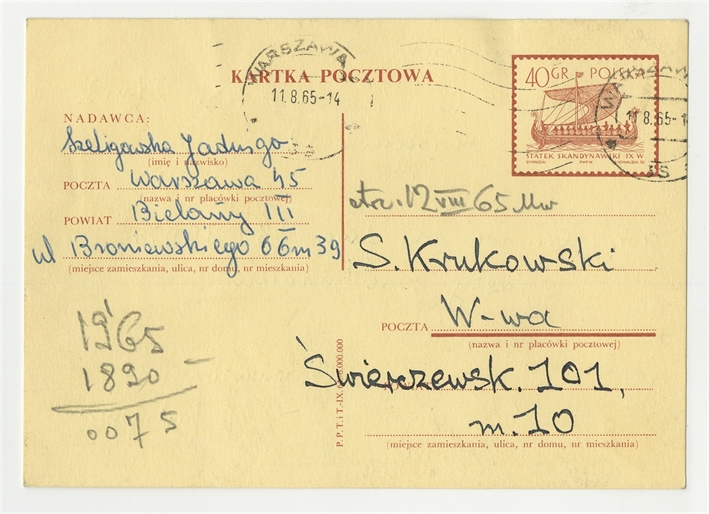 WARSZAWA
11.8.65-14
KARTKA POCZTOWA
40 GR POLSKA
STATEK SKANDYNAWSKI IX W
WARSZAWA
11.8.65-1
NADAWCA:
Szeligowska Jadwiga
(imię i nazwisko)
POCZTA Warszawa 45
(nazwa i nr placówki pocztowej)
POWIAT Bielany III
ul Broniewskiego 66 m 39
(miejsce zamieszkania, ulica, nr domu, nr mieszkania)
otrz. 12 VIII 65
S. Krukowski
POCZTA W-wa
(nazwa i nr placówki pocztowej)
Świerczewsk. 101,
m. 10
(miejsce zamieszkania, ulica, nr domu, nr mieszkania)
1965
1890 -
0075
P.P.T. i T.-IX
000.000